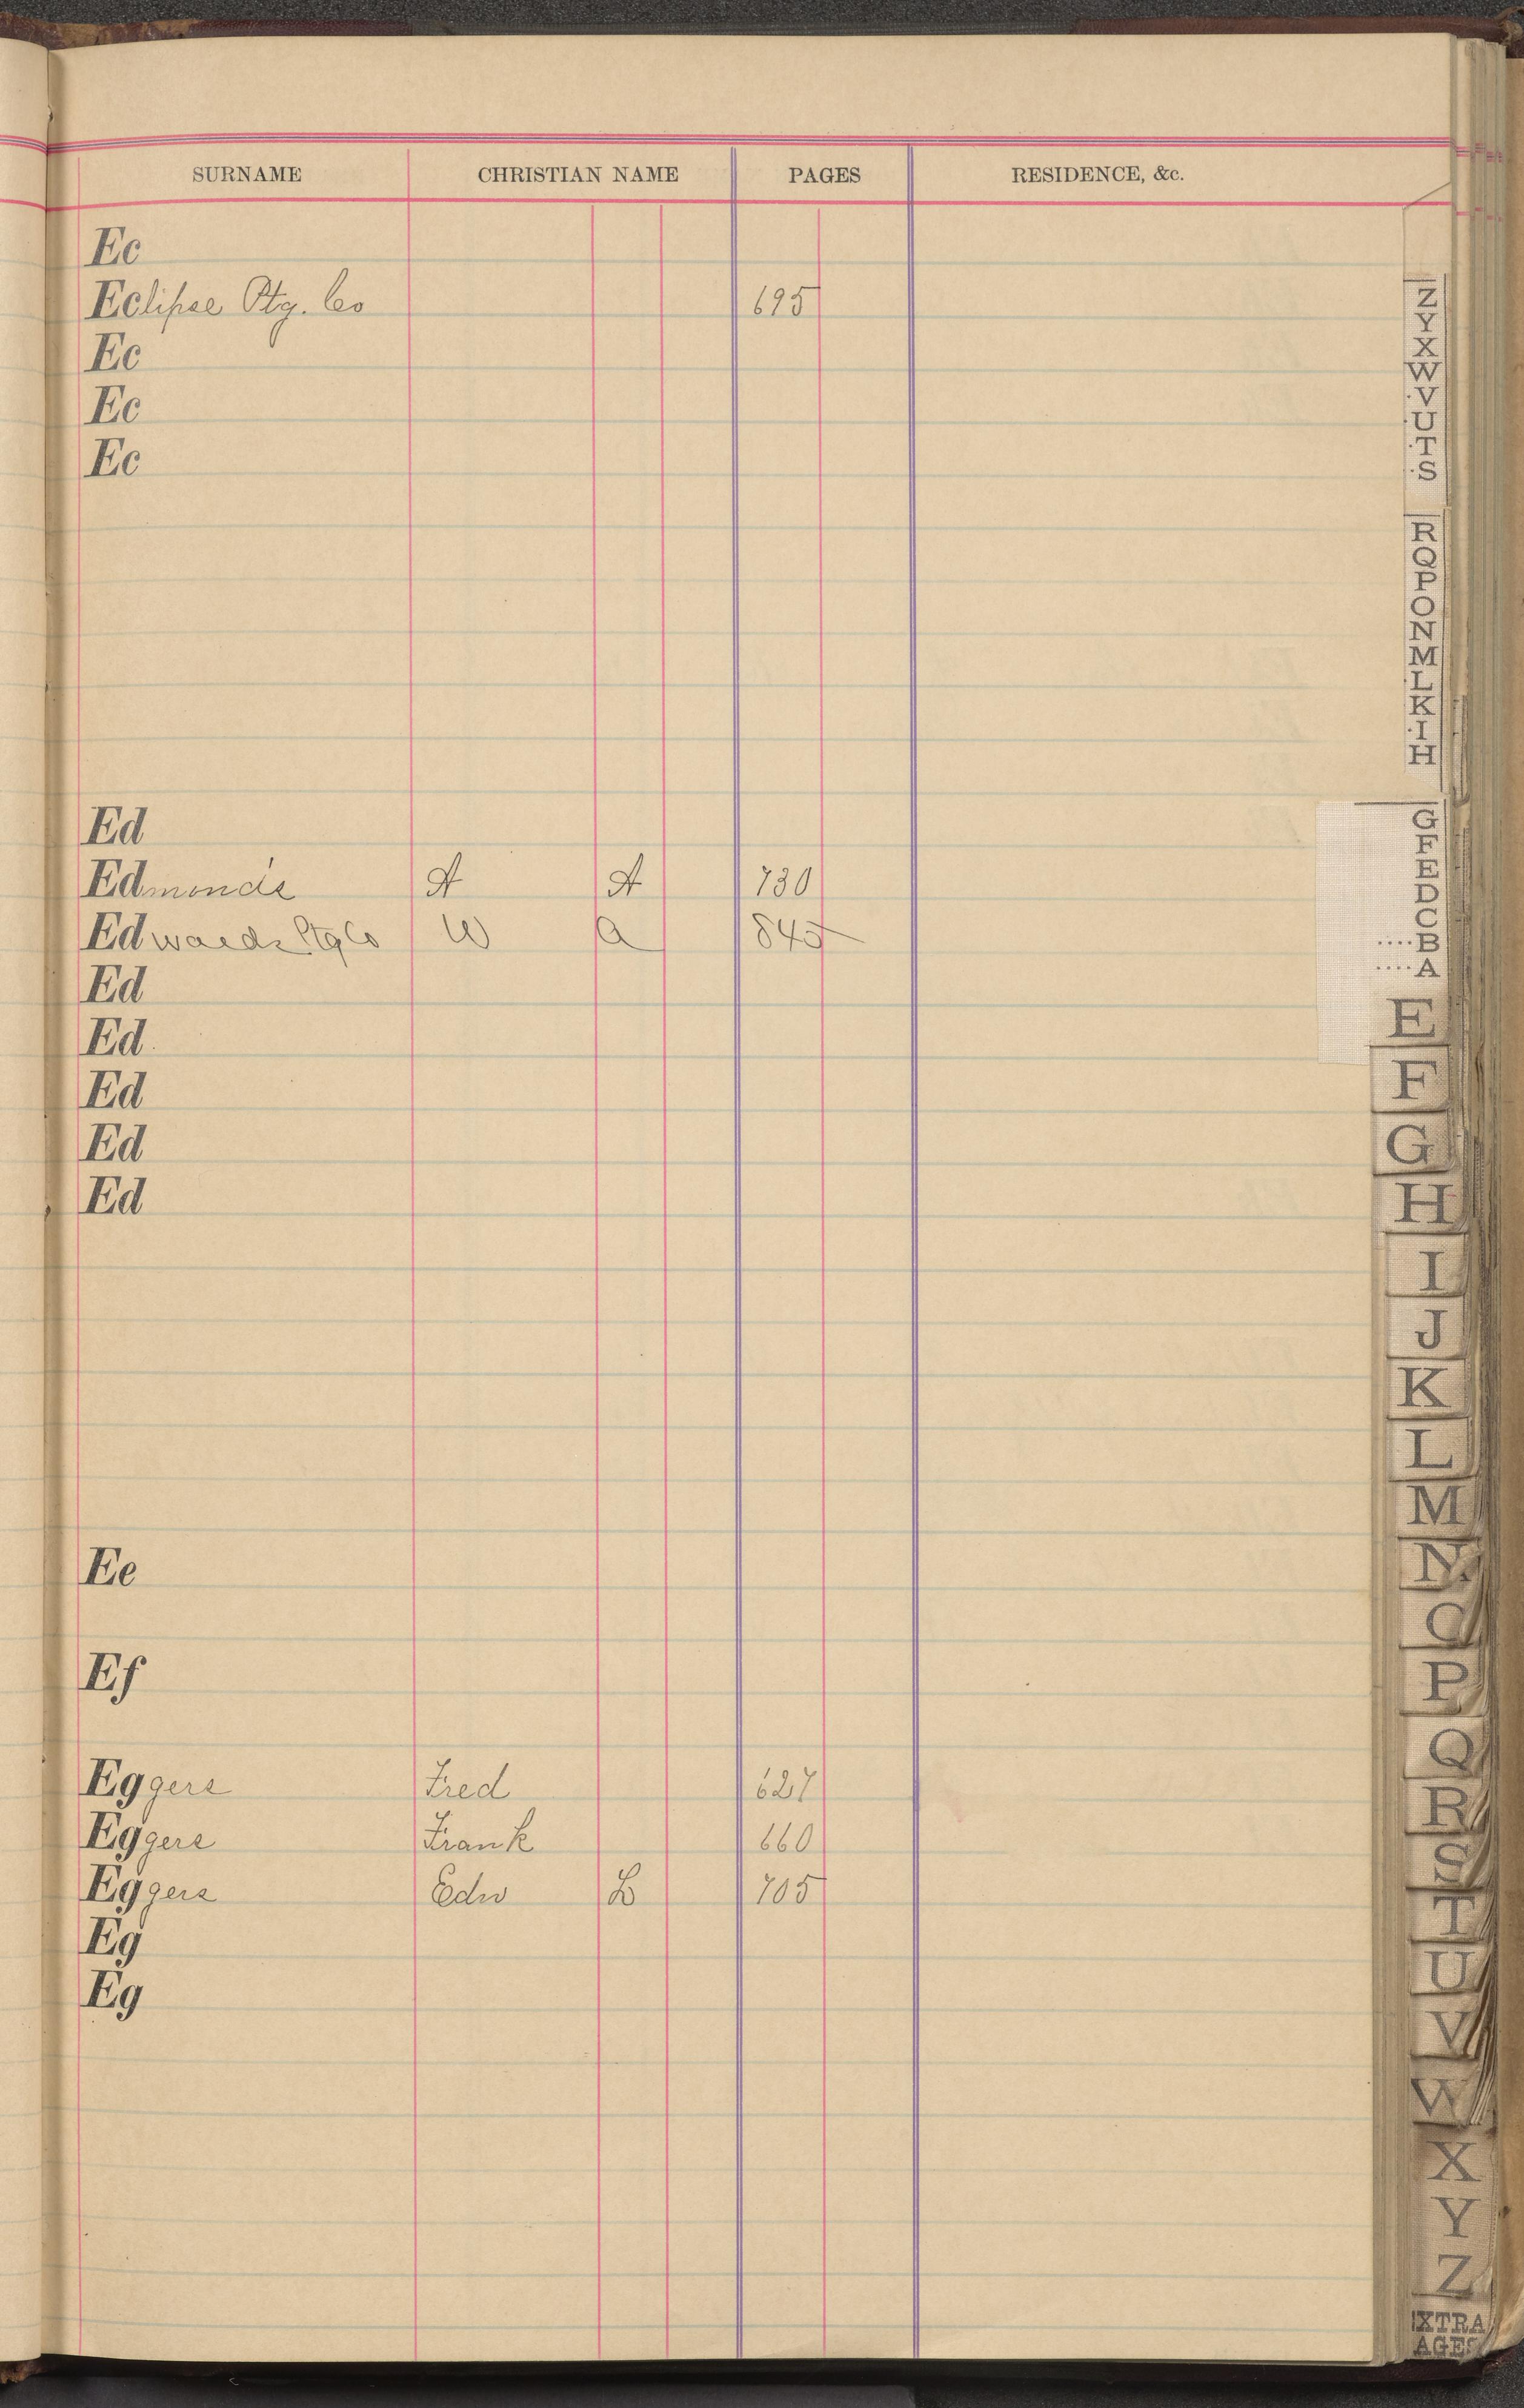 SURNAME CHRISTIAN NAME PAGES RESIDENCE, &c.
Ec
Eclipse Ptg. Co 695
Ec
Ec
Ec
Ed
Edmonds A A 730
Edwards Ptg Co W A 845
Ed
Ed
Ed
Ed
Ed
Ee
Ef
Eggers Fred 627
Eggers Frank 660
Eggers Edw L 705
Eg
Eg
Z
Y
X
W
V
U
T
S
R
Q
P
O
N
M
L
K
I
H
G
F
E
D
C
B
A
E
F
G
H
I
J
K
L
M
N
O
P
Q
R
S
T
U
V
W
X
Y
Z
EXTRA
AGES